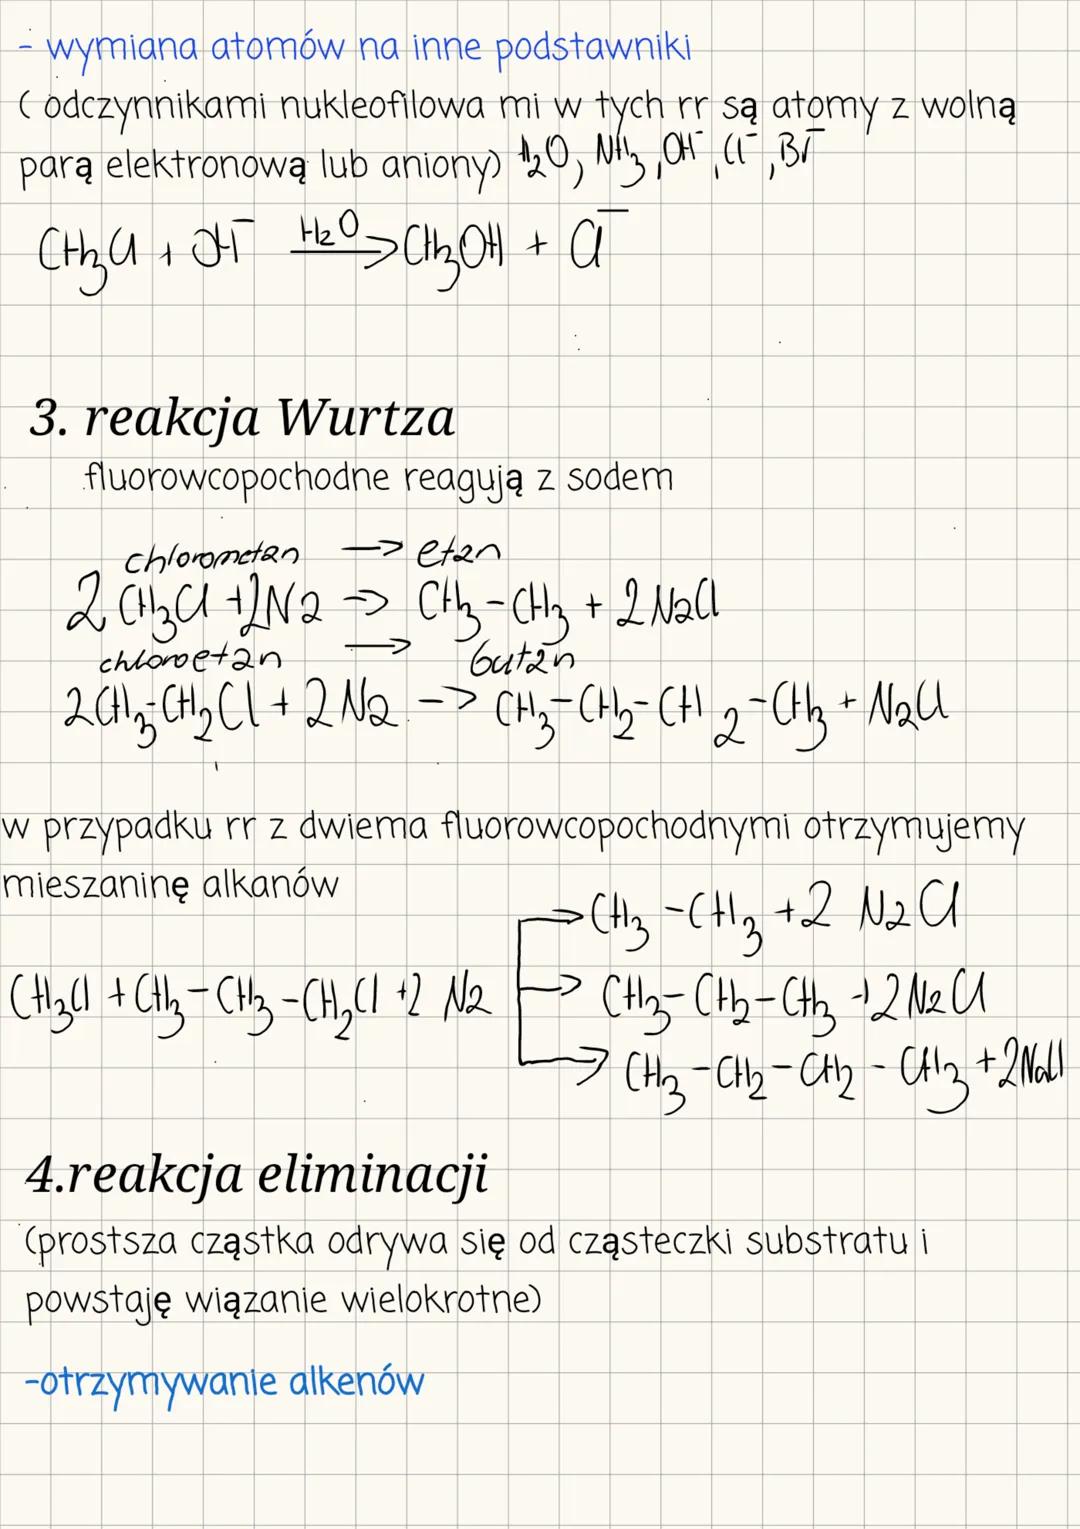 - wymiana atomów na inne podstawniki
( odczynnikami nukleofilowa mi w tych rr są atomy z wolną
parą elektronową lub aniony) H₂O, NH₃, OH⁻, Cl⁻, Br⁻
CH₃Cl + OH⁻ H₂O → CH₃OH + Cl⁻
3. reakcja Wurtza
fluorowcopochodne reagują z sodem
chlorometan → etan
2 CH₃Cl + 2Na → CH₃-CH₃ + 2 NaCl
chloroetan → butan
2CH₃-CH₂Cl + 2 Na -> CH₃-CH₂-CH₂-CH₃ + NaCl
w przypadku rr z dwiema fluorowcopochodnymi otrzymujemy
mieszaninę alkanów
→ CH₃-CH₃ + 2 NaCl
CH₃Cl + CH₃-CH₃-CH₂Cl + 2 Na → CH₃-CH₂-CH₃ + 2NaCl
→ CH₃-CH₂-CH₂-CH₃ + 2NaCl
4.reakcja eliminacji
(prostsza cząstka odrywa się od cząsteczki substratu i
powstaję wiązanie wielokrotne)
-otrzymywanie alkenów